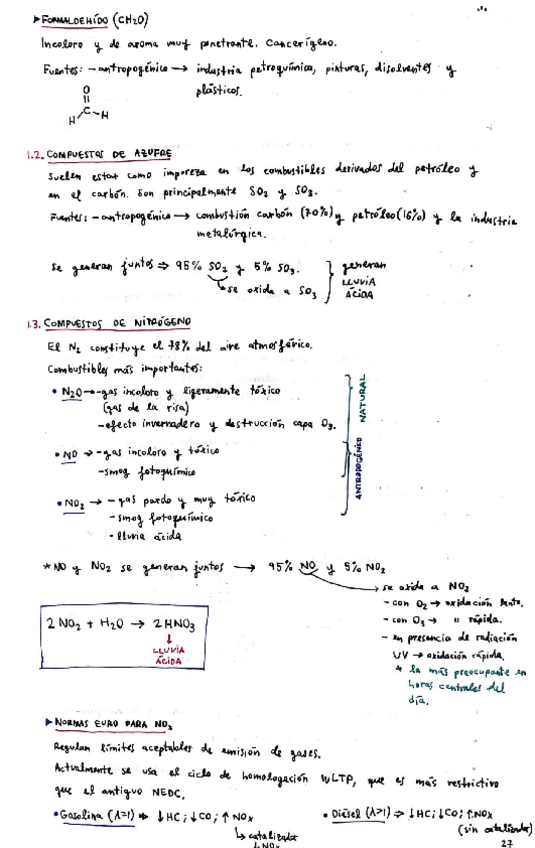 ➤ FORMALDEHÍDO (CH2O)
Incoloro y de aroma muy penetrante. Cancerígeno.
Fuentes: - antropogénico → industria petroquímica, pinturas, disolventes y
plásticos.
O
H C H
1.2. COMPUESTOS DE AZUFRE
Suelen estar como impureza en los combustibles derivados del petróleo y
en el carbón. Son principalmente SO2 y SO3.
Fuentes: - antropogénico → combustión carbón (70%) y petróleo (16%) y la industria
metalúrgica.
Se generan juntos ⇒ 95% SO2 y 5% SO3. } generan
LLUVIA
↳ se oxida a SO3 ÁCIDA
1.3. COMPUESTOS DE NITRÓGENO
El N2 constituye el 78% del aire atmosférico.
Combustibles más importantes:
• N2O → - gas incoloro y ligeramente tóxico
(gas de la risa)
- efecto invernadero y destrucción capa O3.
• NO → - gas incoloro y tóxico
- smog fotoquímico
• NO2 → - gas pardo y muy tóxico
- smog fotoquímico
- lluvia ácida
NATURAL
ANTROPOGÉNICO
* NO y NO2 se generan juntos → 95% NO y 5% NO2
→ se oxida a NO2
- con O2 → oxidación lenta.
- con O3 → " rápida.
- en presencia de radiación
UV → oxidación rápida.
* la más preocupante en
horas centrales del
día.
2 NO2 + H2O → 2 HNO3
↓
LLUVIA
ÁCIDA
➤ NORMAS EURO PARA NOx
Regulan límites aceptables de emisión de gases.
Actualmente se usa el ciclo de homologación WLTP, que es más restrictivo
que el antiguo NEDC.
• Gasolina (λ=1) ⇒ ↓HC; ↓CO; ↑NOx
↳ catalizador
↓NOx
• Diésel (λ>1) ⇒ ↓HC; ↓CO; ↑NOx
(sin catalizador)
27